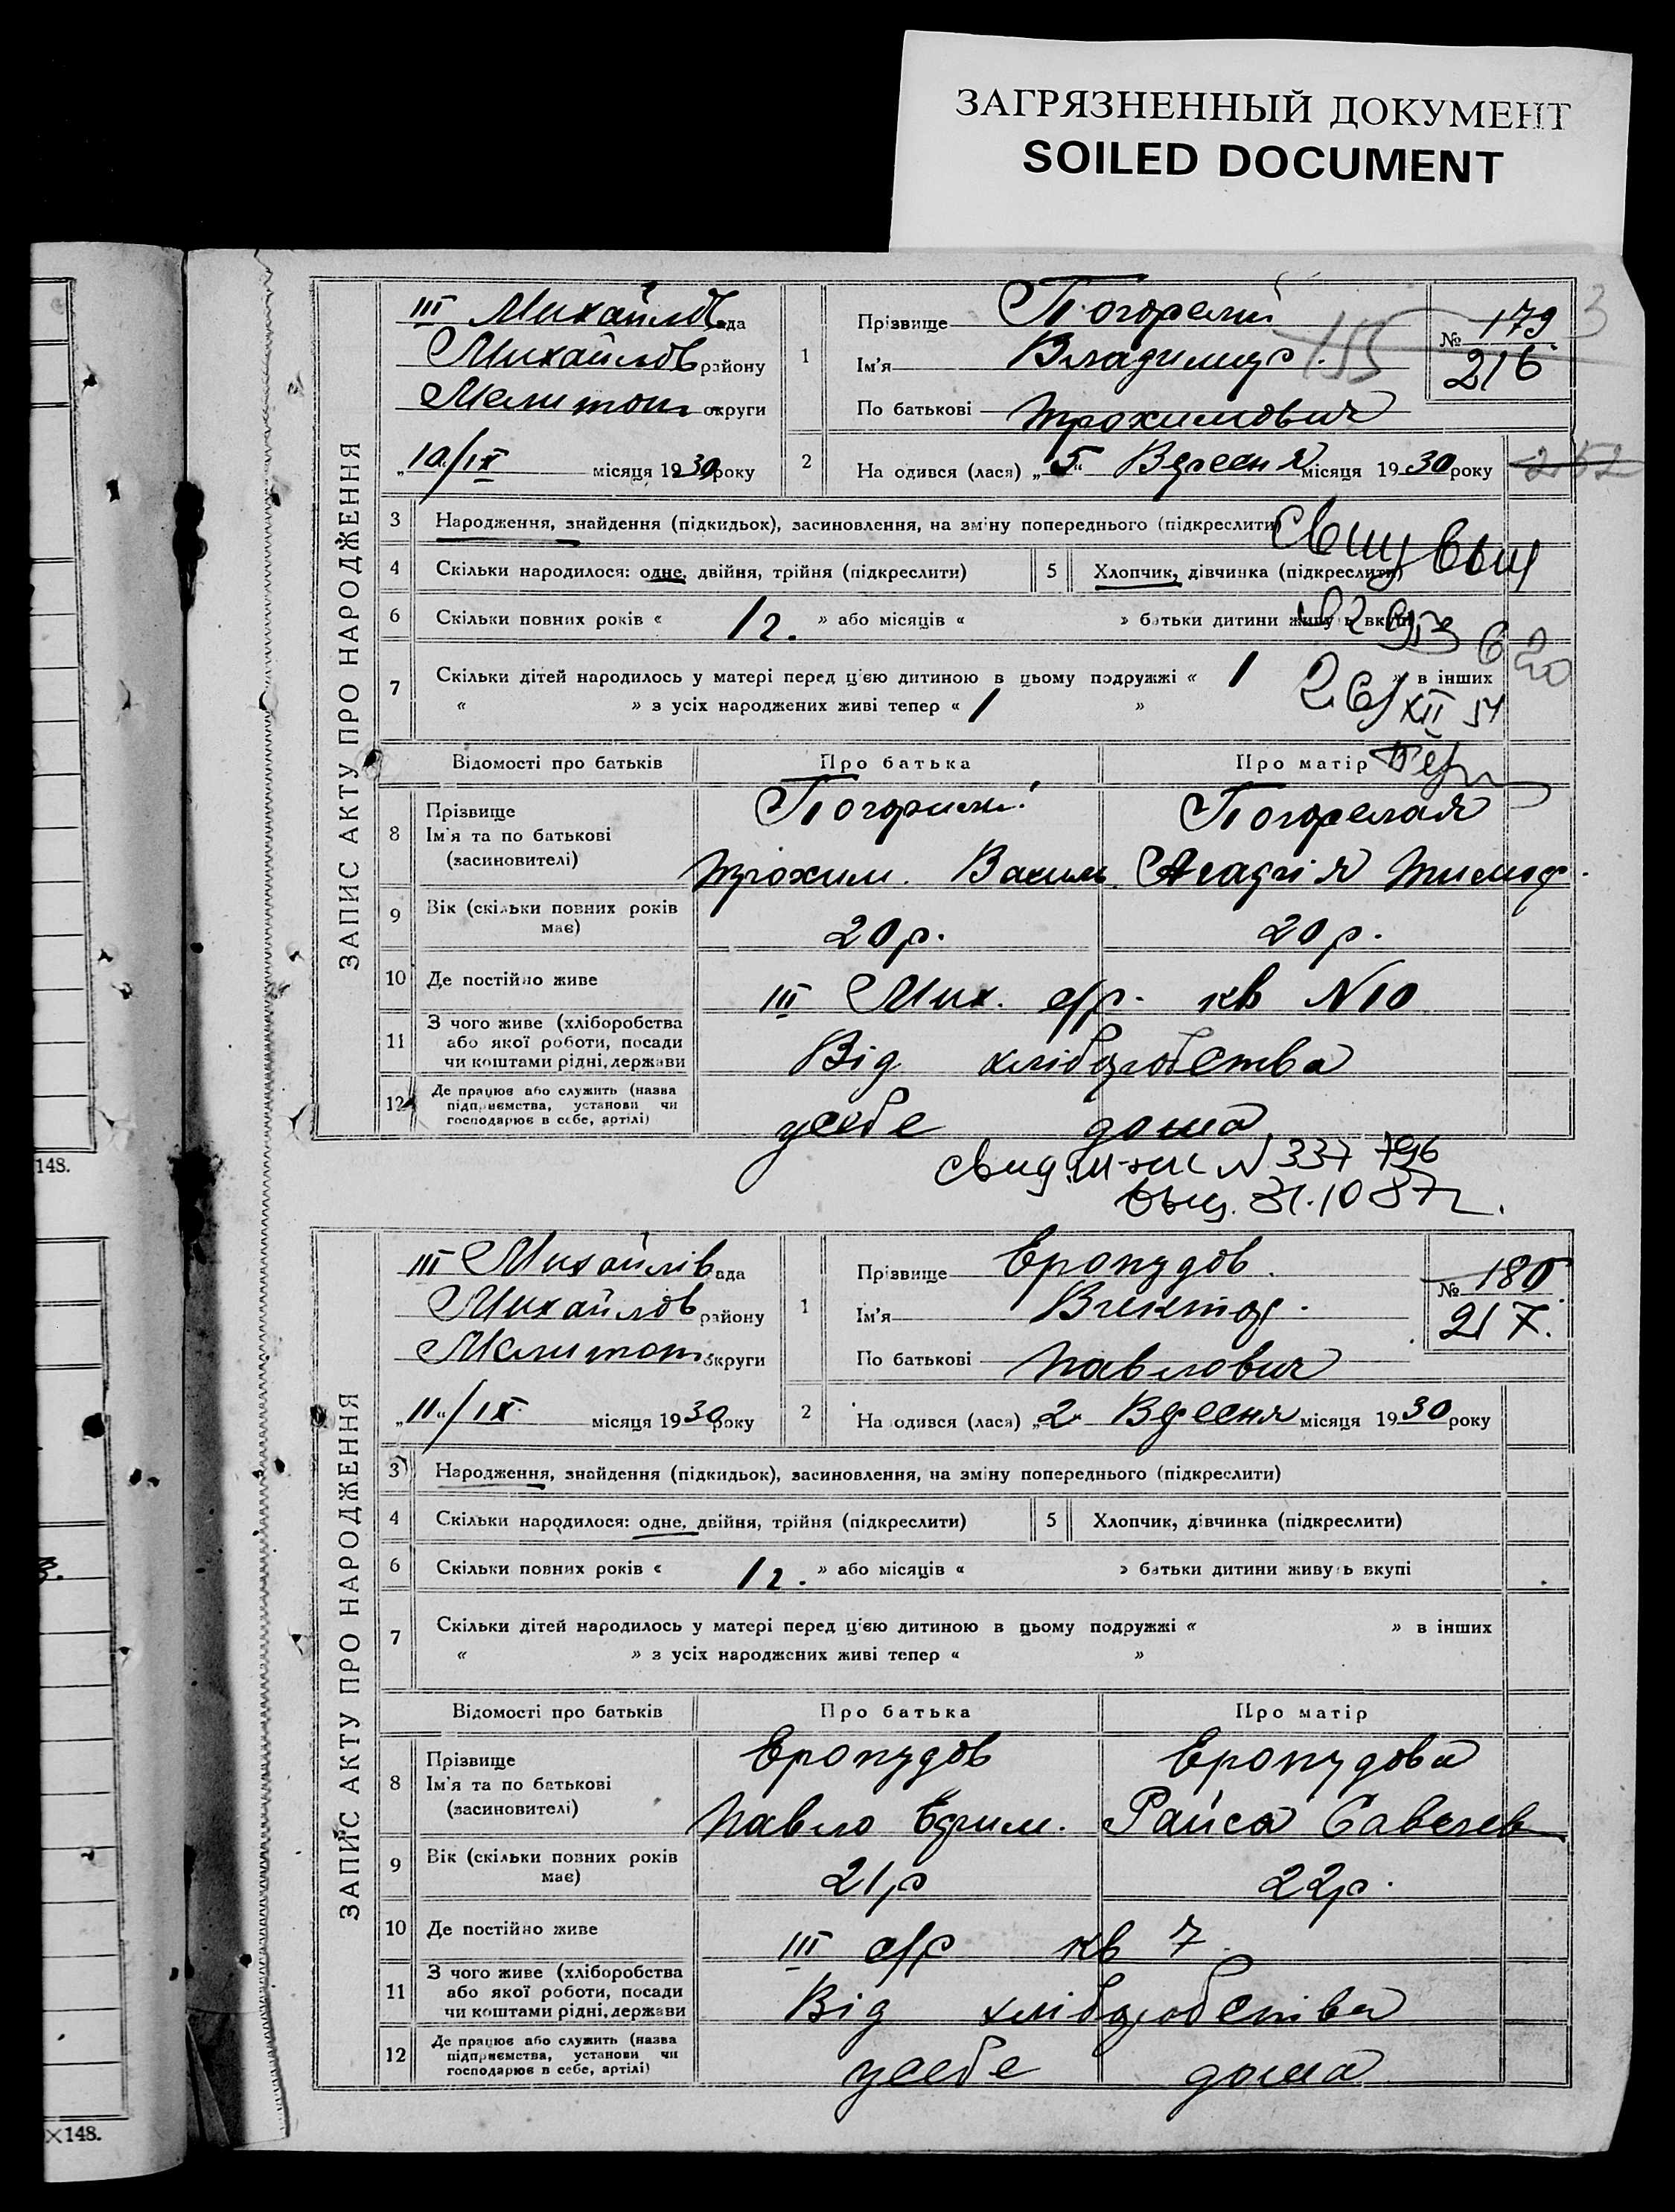 ЗАГРЯЗНЕННЫЙ ДОКУМЕНТ
SOILED DOCUMENT
ЗАПИС АКТУ ПРО НАРОДЖЕННЯ
III Михайлов ада
Михайлов району
Мелитоп округи
„10"/IX місяця 1930 року
1
Прізвище Погорелий
Ім'я Владимир.
По батькові Трохимович
155
№ 179
216
3
2 На одився (лася) „5" Вересня місяця 1930 року
252
3 Народження, знайдення (підкидьок), засиновлення, на зміну попереднього (підкреслити)
4 Скільки народилося: одне, двійня, трійня (підкреслити)
5 Хлопчик, дівчинка (підкреслити)
6 Скільки повних років « 1 г. » або місяців « » батьки дитини живуть вкупі
7 Скільки дітей народилось у матері перед ц'єю дитиною в цьому подружжі « 1 » в інших
« » з усіх народжених живі тепер « 1 »
26/XII 51
Відомості про батьків
Про батька
Про матір
8 Прізвище
Ім'я та по батькові
(засиновителі)
Погорилий
Трохим. Василь.
Погорелая
Агафія Тимоф.
9 Вік (скільки повних років має)
20 р.
20 р.
10 Де постійно живе
III Мих. с/р. кв N 10
11 З чого живе (хліборобства
або якої роботи, посади
чи коштами рідні, держави
Від хліборобства
12 Де працює або служить (назва
підприємства, установи чи
господарює в себе, артілі)
усебе дома
свид. N 337 796
выд. 31.10 87 г.
148.
ЗАПИС АКТУ ПРО НАРОДЖЕННЯ
III Михайлів ада
Михайлов району
Мелитоп. округи
„11"/IX місяця 1930 року
1
Прізвище Еропудов.
Ім'я Виктор.
По батькові Павлович
№ 180
217.
2 На одився (лася) „2" Вересня місяця 1930 року
3 Народження, знайдення (підкидьок), засиновлення, на зміну попереднього (підкреслити)
4 Скільки народилося: одне, двійня, трійня (підкреслити)
5 Хлопчик, дівчинка (підкреслити)
6 Скільки повних років « 1 г. » або місяців « » батьки дитини живуть вкупі
7 Скільки дітей народилось у матері перед ц'єю дитиною в цьому подружжі « » в інших
« » з усіх народжених живі тепер « »
Відомості про батьків
Про батька
Про матір
8 Прізвище
Ім'я та по батькові
(засиновителі)
Еропудов
Павло Ефим.
Еропудова
Раиса Савелев
9 Вік (скільки повних років має)
21 р
22 р.
10 Де постійно живе
III с/р кв 7
11 З чого живе (хліборобства
або якої роботи, посади
чи коштами рідні, держави
Від хліборобства
12 Де працює або служить (назва
підприємства, установи чи
господарює в себе, артілі)
усебе дома
×148.